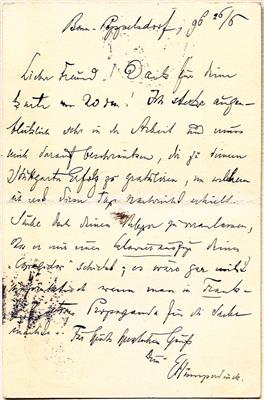 Bonn-Poppelsdorf, 96 26/5
Lieber Freund! Dank für deine
Karte vom 20ten! Ich stecke augen-
blicklich sehr in der Arbeit und muss
mich darauf beschränken, dir zu deinem
Stuttgarter Erfolg zu gratulieren, von welchem
ich erst diese Tage Nachricht erhielt.
Suche doch deinen Verleger zu veranlassen,
dass er mir einen Clavierauszug deines
"Corregidor" schickt; es wäre gar nicht
wenn man in Frank-
etwas Propaganda für die Sache
machte. Für heute herzlichen Gruß
Dein EHumperdinck.